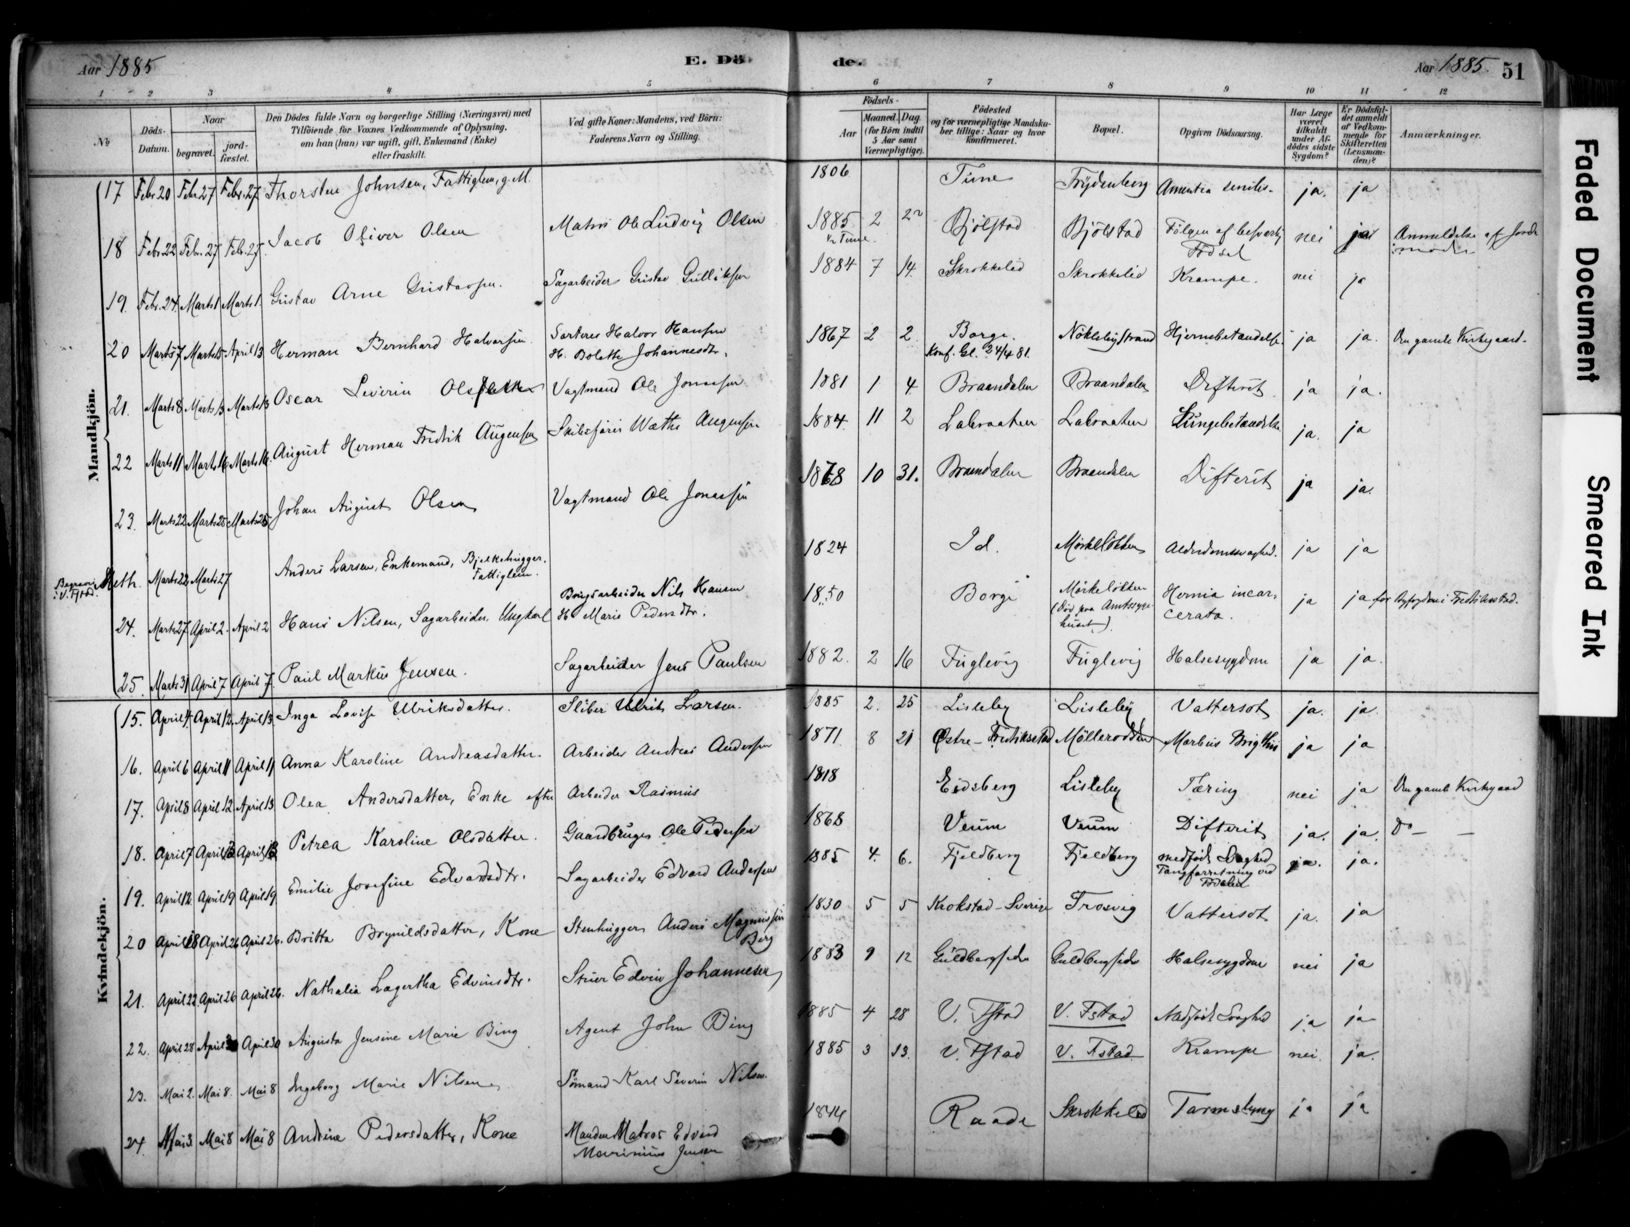 Aar 1885
E. Dö
de.
Aar 1885. 51
1 2 3 4 5 6 7 8 9 10 11 12
№
Döds-Datum.
Naar
begravet.
jord-fæstet.
Den Dödes fulde Navn og borgerlige Stilling (Næringsvei) med Tilföiende for Voxnes Vedkommende af Oplysning, om han (hun) var ugift, gift, Enkemand (Enke) eller fraskilt.
Ved gifte Koner: Mandens, ved Börn: Faderens Navn og Stilling.
Födsels-
Aar
Maaned. Dag.
(for Börn indtil 5 Aar samt Værnepligtige).
Födested
og for værnepligtige Mandskaber tillige: Naar og hvor konfirmeret.
Bopæl.
Opgiven Dödsaarsag.
Har Læge været tilkaldt under Afdödes sidste Sygdom?
Er Dödsfaldet anmeldt af Vedkommende for Skifteretten (Lensmanden)?
Anmærkninger.
Mandkjön.
17 Febr 20 Febr 27 Febr. 27 Thorsten Johnsen, Fattiglem, g.M. 1806 Tune Frydenberg Amentia senilis ja. ja
18 Febr. 22 Febr. 27 Febr. 27. Jacob Oliver Olsen Matros Ole Ludvig Olsen 1885 2 Bjölstad Bjölstad Fölgen af Födsel nei ja Anmeldelse af
19. Febr. 24. Marts 1 Marts 1. Gustav Arne Gustavsen. Sagarbeider Gustav Gulliksen 1884 7 14. Skrokkelid Skrokkelid Krampe. nei ja
20 Marts 7 April 13 Herman Bernhard Halvorsen Sorterer Halvor Hansen
H. Bolette Johannesdtr. 1867 2 2. Borge.
Konf. Gl. 24/4 81. Nökleby Strand ja ja. Den gamle Kirkegaard.
21. Marts 8 Marts 13 Marts 13 Oscar Severin Vagtmand Ole Jonassen 1881 1 4. Braendalen Braendalen Difterit ja ja.
22 Marts 11 Marts 16 Marts 16. August Herman Fredrik Augensen Skibsförer Augensen 1884. 11 2 Labraaten Labraaten Lungebetændelse ja. ja
23. Marts 22 Marts 25 Marts 25 Johan August Olsen Vagtmand Ole Jonassen 1878 10 31. Braendalen Braendalen Difterit ja ja.
Marts 22 Marts 27 Anders Larsen, Enkemand, Bjelkehugger.
Fattiglem. 1824 Id. Alderdomssvaghed. ja ja
24. Marts 27 April 2. April 2 Hans Nilsen, Sagarbeider, Ungkarl Brugsarbeider Nils Hansen
H. Marie Pedersdtr. 1850 Borge (död paa Amtssygehuset). Hernia incarcerata. ja ja for Byfogden i Fredrikstad.
25. Marts 31 April 7 April 7. Paul Markus Jensen. Sagarbeider Jens Paulsen 1882. 2 16 Fuglevig Fuglevig Halssygdom ja ja.
Kvindekjön.
15. April 4. April 12. April 13. Inga Lovise Ulriksdatter. Sliber Ulrik Larsen. 1885 2. 25 Lisleby Lisleby Vattersot ja. ja.
16. April 6 April 11 April 11 Anna Karoline Andreasdatter. Arbeider Andreas Andersen 1871 8 21 Østre-Fredrikstad Møllerodden Morbus Brigthii ja ja
17. April 8 April 12 April 13 Olea Andersdatter, Enke efter Arbeider Rasmus 1818 Eidsberg Lisleby Tæring nei ja Den gamle Kirkegaard
18. April 7 April 13 April 13 Petrea Karoline Olsdatter. Gaardbruger Ole Pedersen 1868 Veum Veum Difterit ja. ja. Do
19. April 12. April 19 April 19. Emilie Josefine Edvardsdtr. Sagarbeider Edvard Andersen 1885 4. 6. Fjeldberg Fjeldberg medfödt Svaghed
Tangforretning ved
Födselen ja. ja.
20 April 18 April 26 April 26. Britta Brynildsdatter, Kone Stenhugger Anders Magnussen
Berg 1830 5 5 Krokstad-Sverige Trosvig Vattersot ja. ja
21. April 22 April 26 April 26. Nathalia Lagertha Edvinsdtr. Stuer Edvin Johannesen 1883 9 12 Guldbergsida Guldbergsida Halssygdom nei ja
22. April 28 April 30 April 30 Augusta Jensine Marie Bing Agent John Bing 1885 4 28 V. Fstad V. Fstad Medfödt Svaghed ja ja
23. Mai 2. Mai 8. Mai 8 Ingeborg Marie Nilsen Sömand Karl Severin Nilsen 1885 3 13. V. Fstad V. Fstad Krampe nei. ja.
24. Mai 3. Mai 8 Mai 8 Andrine Pedersdatter, Kone Manden Matros Edvard
Jensen 1844 Raade Skrokkelid Tarmslyng ja ja
Faded Document
Smeared Ink